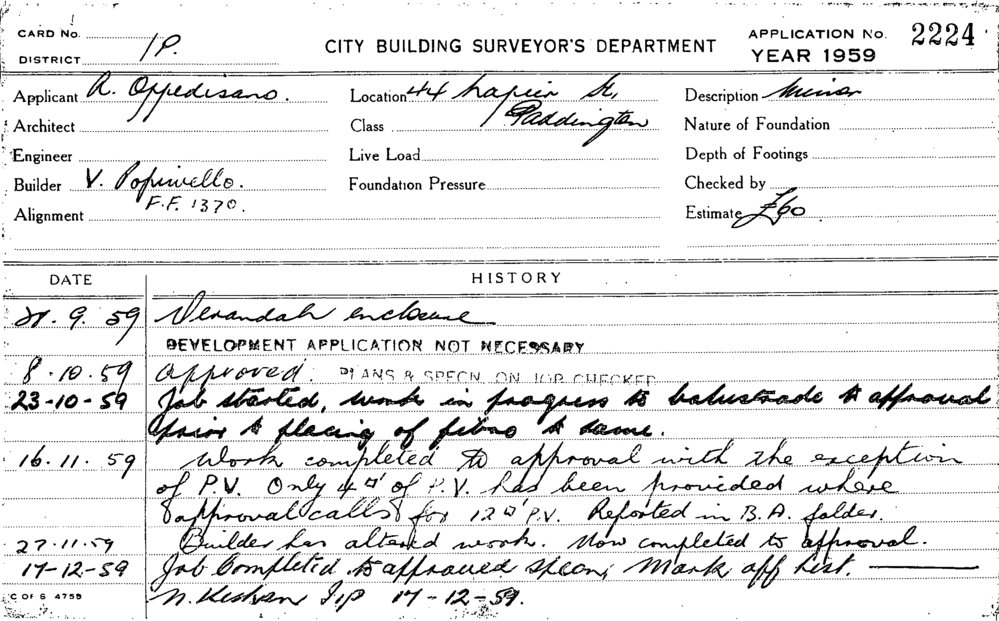 CARD No.
DISTRICT 1P.
CITY BUILDING SURVEYOR'S DEPARTMENT
APPLICATION No. 2224
YEAR 1959
Applicant R. Oppedisano.
Location 44 Napier St,
Description Minor
Architect
Class Paddington
Nature of Foundation
Engineer
Live Load
Depth of Footings
Builder V. Popiwello.
Foundation Pressure
Checked by
F.F. 1370.
Alignment
Estimate £60
DATE
HISTORY
9. 59 Verandah enclosure
DEVELOPMENT APPLICATION NOT NECESSARY
8.10.59 Approved. PLANS & SPECN. ON JOB CHECKED
23-10-59 Job started, work in progress to balustrade to approval
prior to placing of fibro to same.
16.11.59 Work completed to approval with the exception
of P.V. Only 4□' of P.V. has been provided where
approval calls for 12□' P.V. Reported in B.A. folder.
27.11.59 Builder has altered work. Now completed to approval.
17-12-59 Job Completed to approved specn; Mark off List.
C OF S 4759
N. 17-12-59.